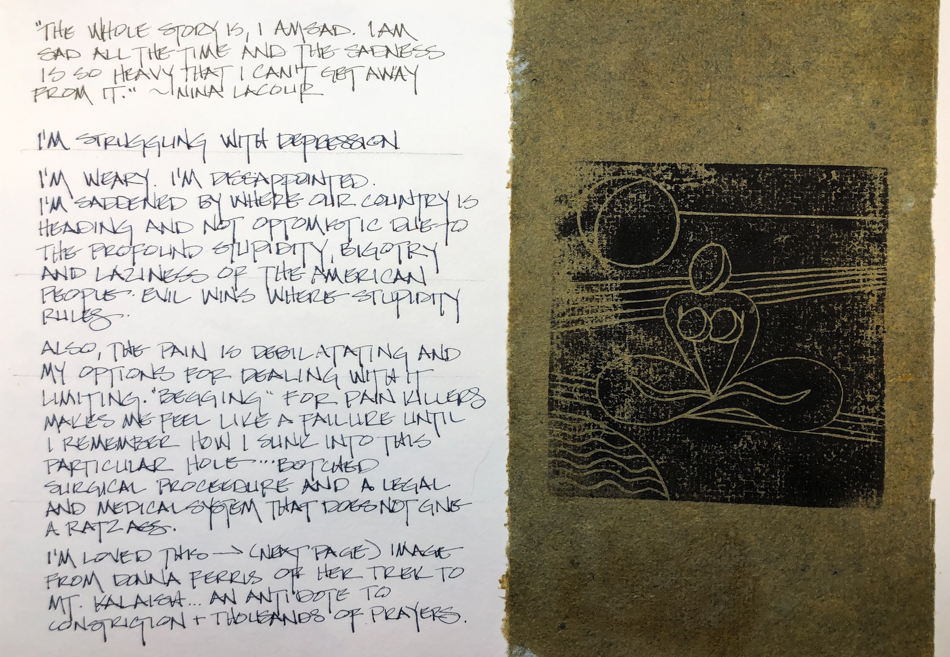 "THE WHOLE STORY IS, I AM SAD. I AM
SAD ALL THE TIME AND THE SADNESS
IS SO HEAVY THAT I CAN'T GET AWAY
FROM IT." ~ NINA LACOUR
I'M STRUGGLING WITH DEPRESSION
I'M WEARY. I'M DISAPPOINTED.
I'M SADDENED BY WHERE OUR COUNTRY IS
HEADING AND NOT OPTOMISTIC DUE TO
THE PROFOUND STUPIDITY, BIGOTRY
AND LAZINESS OF THE AMERICAN
PEOPLE. EVIL WINS WHERE STUPIDITY
RULES..
ALSO, THE PAIN IS DEBILATATING AND
MY OPTIONS FOR DEALING WITH IT
LIMITING. "BEGGING" FOR PAIN KILLERS
MAKES ME FEEL LIKE A FAILURE UNTIL
I REMEMBER HOW I SUNK INTO THIS
PARTICULAR HOLE ... BOTCHED
SURGICAL PROCEEDURE AND A LEGAL
AND MEDICAL SYSTEM THAT DOES NOT GIVE
A RATZ ASS.
I'M LOVED THIS → (NEXT PAGE) IMAGE
FROM DONNA FERRIS OF HER TREK TO
MT. KALAISH... AN ANTIDOTE TO
CONSTRICTION + THOUSANDS OF PRAYERS.